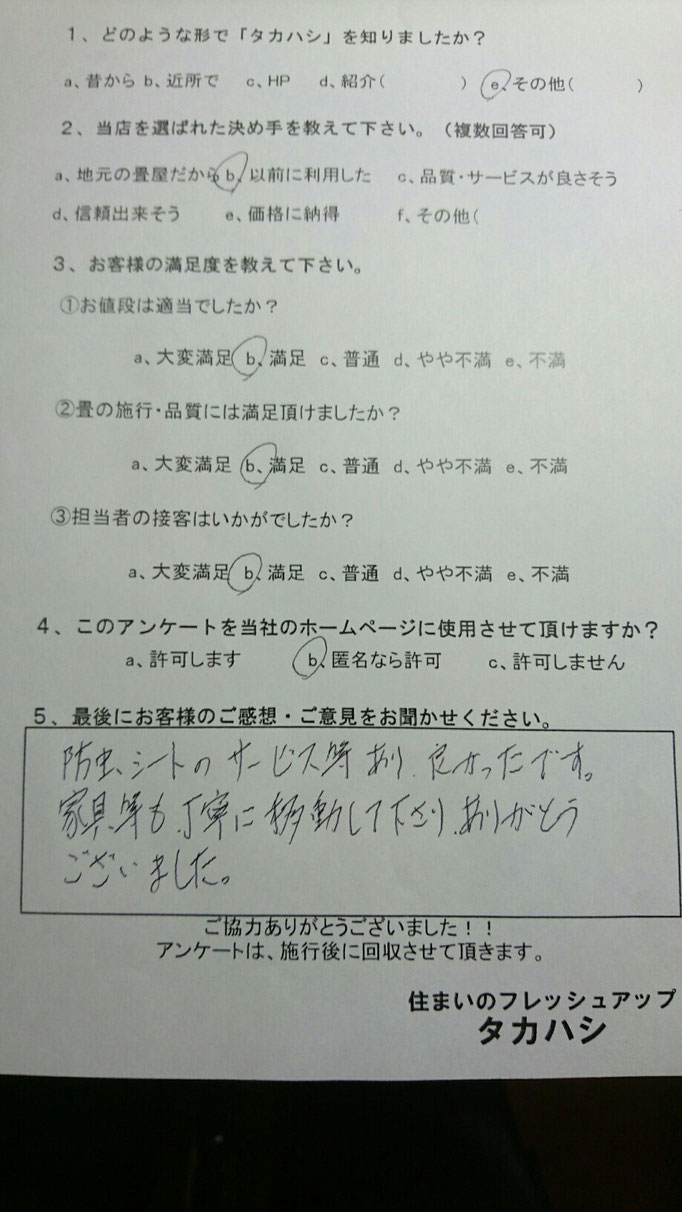 1、どのような形で「タカハシ」を知りましたか？
a、昔から b、近所で c、HP d、紹介（ ） e、その他（ ）
2、当店を選ばれた決め手を教えて下さい。（複数回答可）
a、地元の畳屋だから b、以前に利用した c、品質・サービスが良さそう
d、信頼出来そう e、価格に納得 f、その他（
3、お客様の満足度を教えて下さい。
①お値段は適当でしたか？
a、大変満足 b、満足 c、普通 d、やや不満 e、不満
②畳の施行・品質には満足頂けましたか？
a、大変満足 b、満足 c、普通 d、やや不満 e、不満
③担当者の接客はいかがでしたか？
a、大変満足 b、満足 c、普通 d、やや不満 e、不満
4、このアンケートを当社のホームページに使用させて頂けますか？
a、許可します b、匿名なら許可 c、許可しません
5、最後にお客様のご感想・ご意見をお聞かせください。
防虫、シートのサービス等あり、良かったです。
家具等も丁寧に移動して下さり、ありがとう
ございました。
ご協力ありがとうございました！！
アンケートは、施行後に回収させて頂きます。
住まいのフレッシュアップ
タカハシ